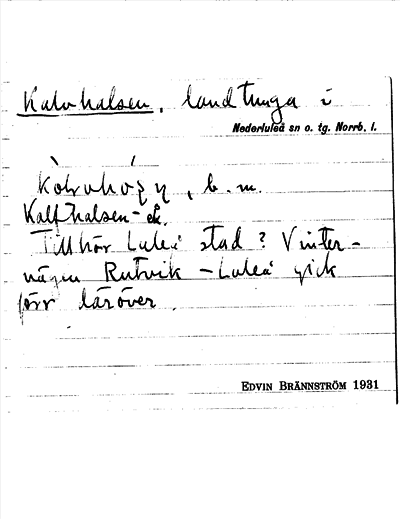 Kalvhalsen, landtunga i
Nederluleå sn o. tg. Norrb. l.
b. m.
Kalfhalsen - ek.
Tillhör Luleå stad? Vinter-
vägen Rutvik - Luleå gick
förr häröver.
EDVIN BRÄNNSTRÖM 1931